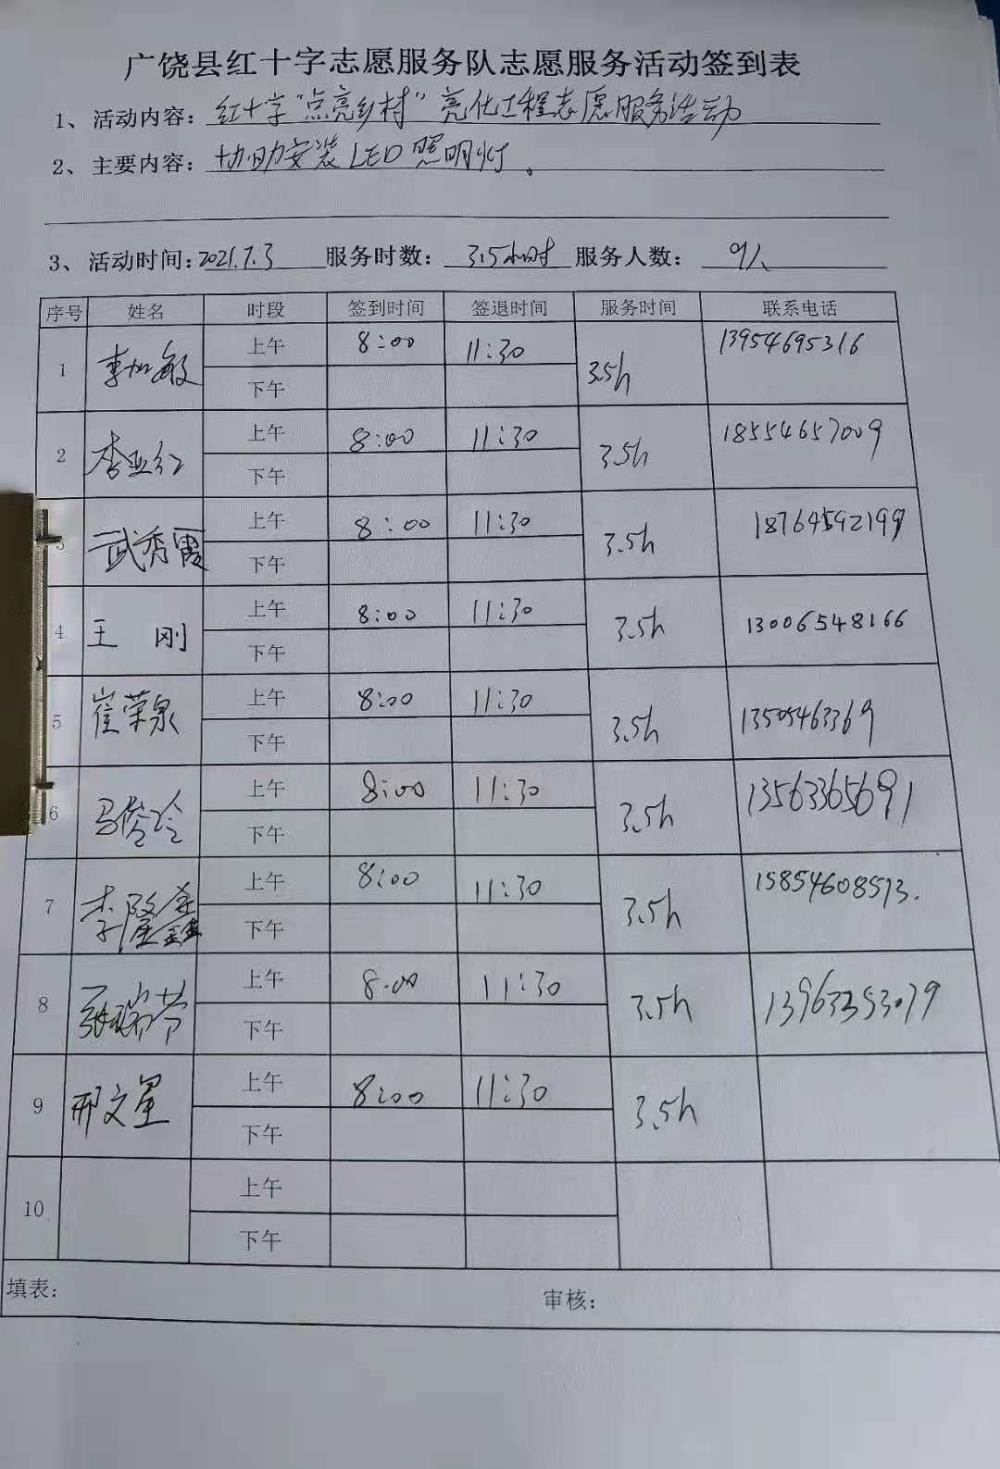 广饶县红十字志愿服务队志愿服务活动签到表
1、活动内容：红十字"点亮乡村"亮化工程志愿服务活动
2、主要内容：协助安装LED照明灯。
3、活动时间：2021.7.3 服务时数：3.5小时 服务人数：9人
序号 姓名 时段 签到时间 签退时间 服务时间 联系电话
1 李加敏 上午 8:00 11:30 3.5h 13954695316
下午
2 李亚红 上午 8:00 11:30 3.5h 18554657009
下午
3 武秀霞 上午 8:00 11:30 3.5h 18764592199
下午
4 王刚 上午 8:00 11:30 3.5h 13006548166
下午
5 崔荣泉 上午 8:00 11:30 3.5h 13505463369
下午
6 马俊玲 上午 8:00 11:30 3.5h 13563365691
下午
7 李隆鑫 上午 8:00 11:30 3.5h 15854608513.
下午
8 张瑞芳 上午 8.00 11:30 3.5h 13963353079
下午
9 邢文星 上午 8:00 11:30 3.5h
下午
10 上午
下午
填表： 审核：